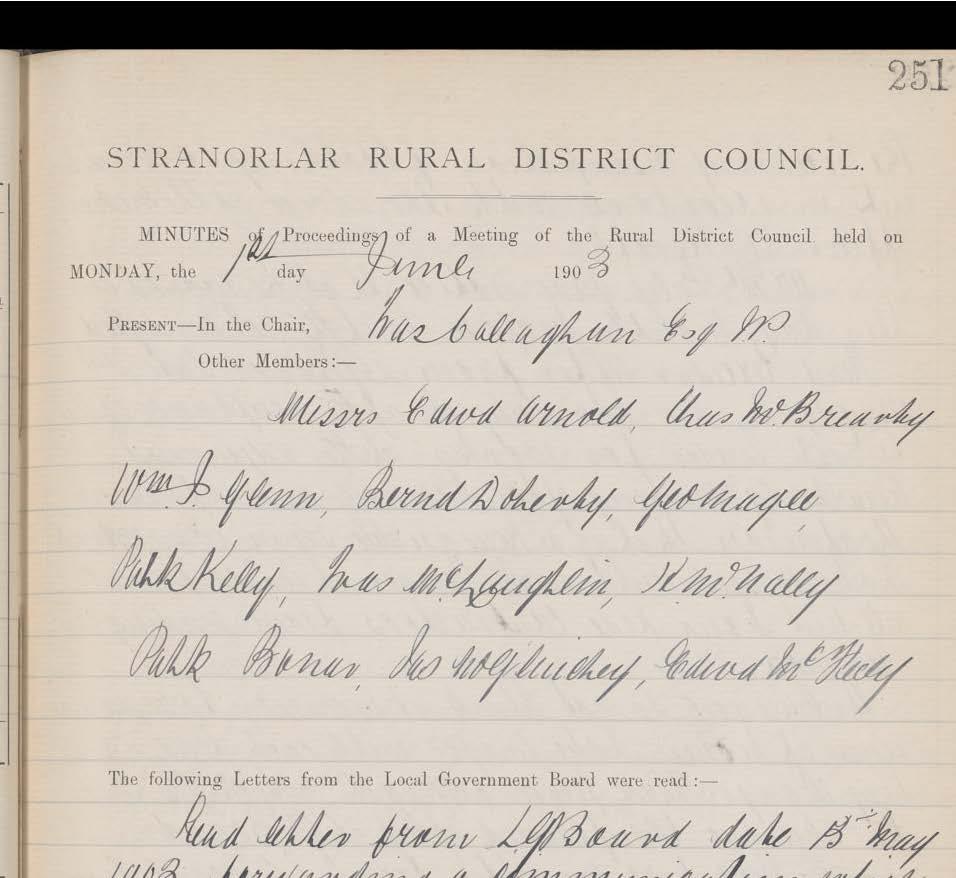 251
STRANORLAR RURAL DISTRICT COUNCIL.
MINUTES of Proceedings of a Meeting of the Rural District Council held on
MONDAY, the 1st day June 1903
PRESENT—In the Chair, Callaghan Esq JP.
Other Members:—
Messrs Edwd Arnold, Chas McBrearty
Wm J. Glenn, Bernd Doherty, Geo Magee,
Patk Kelly, McLaughlin, McNally
Patk Bonar, Jas McGlinchey, Edwd McFeely
The following Letters from the Local Government Board were read:—
Read letter from LGBoard date May
1903 forwarding a communication